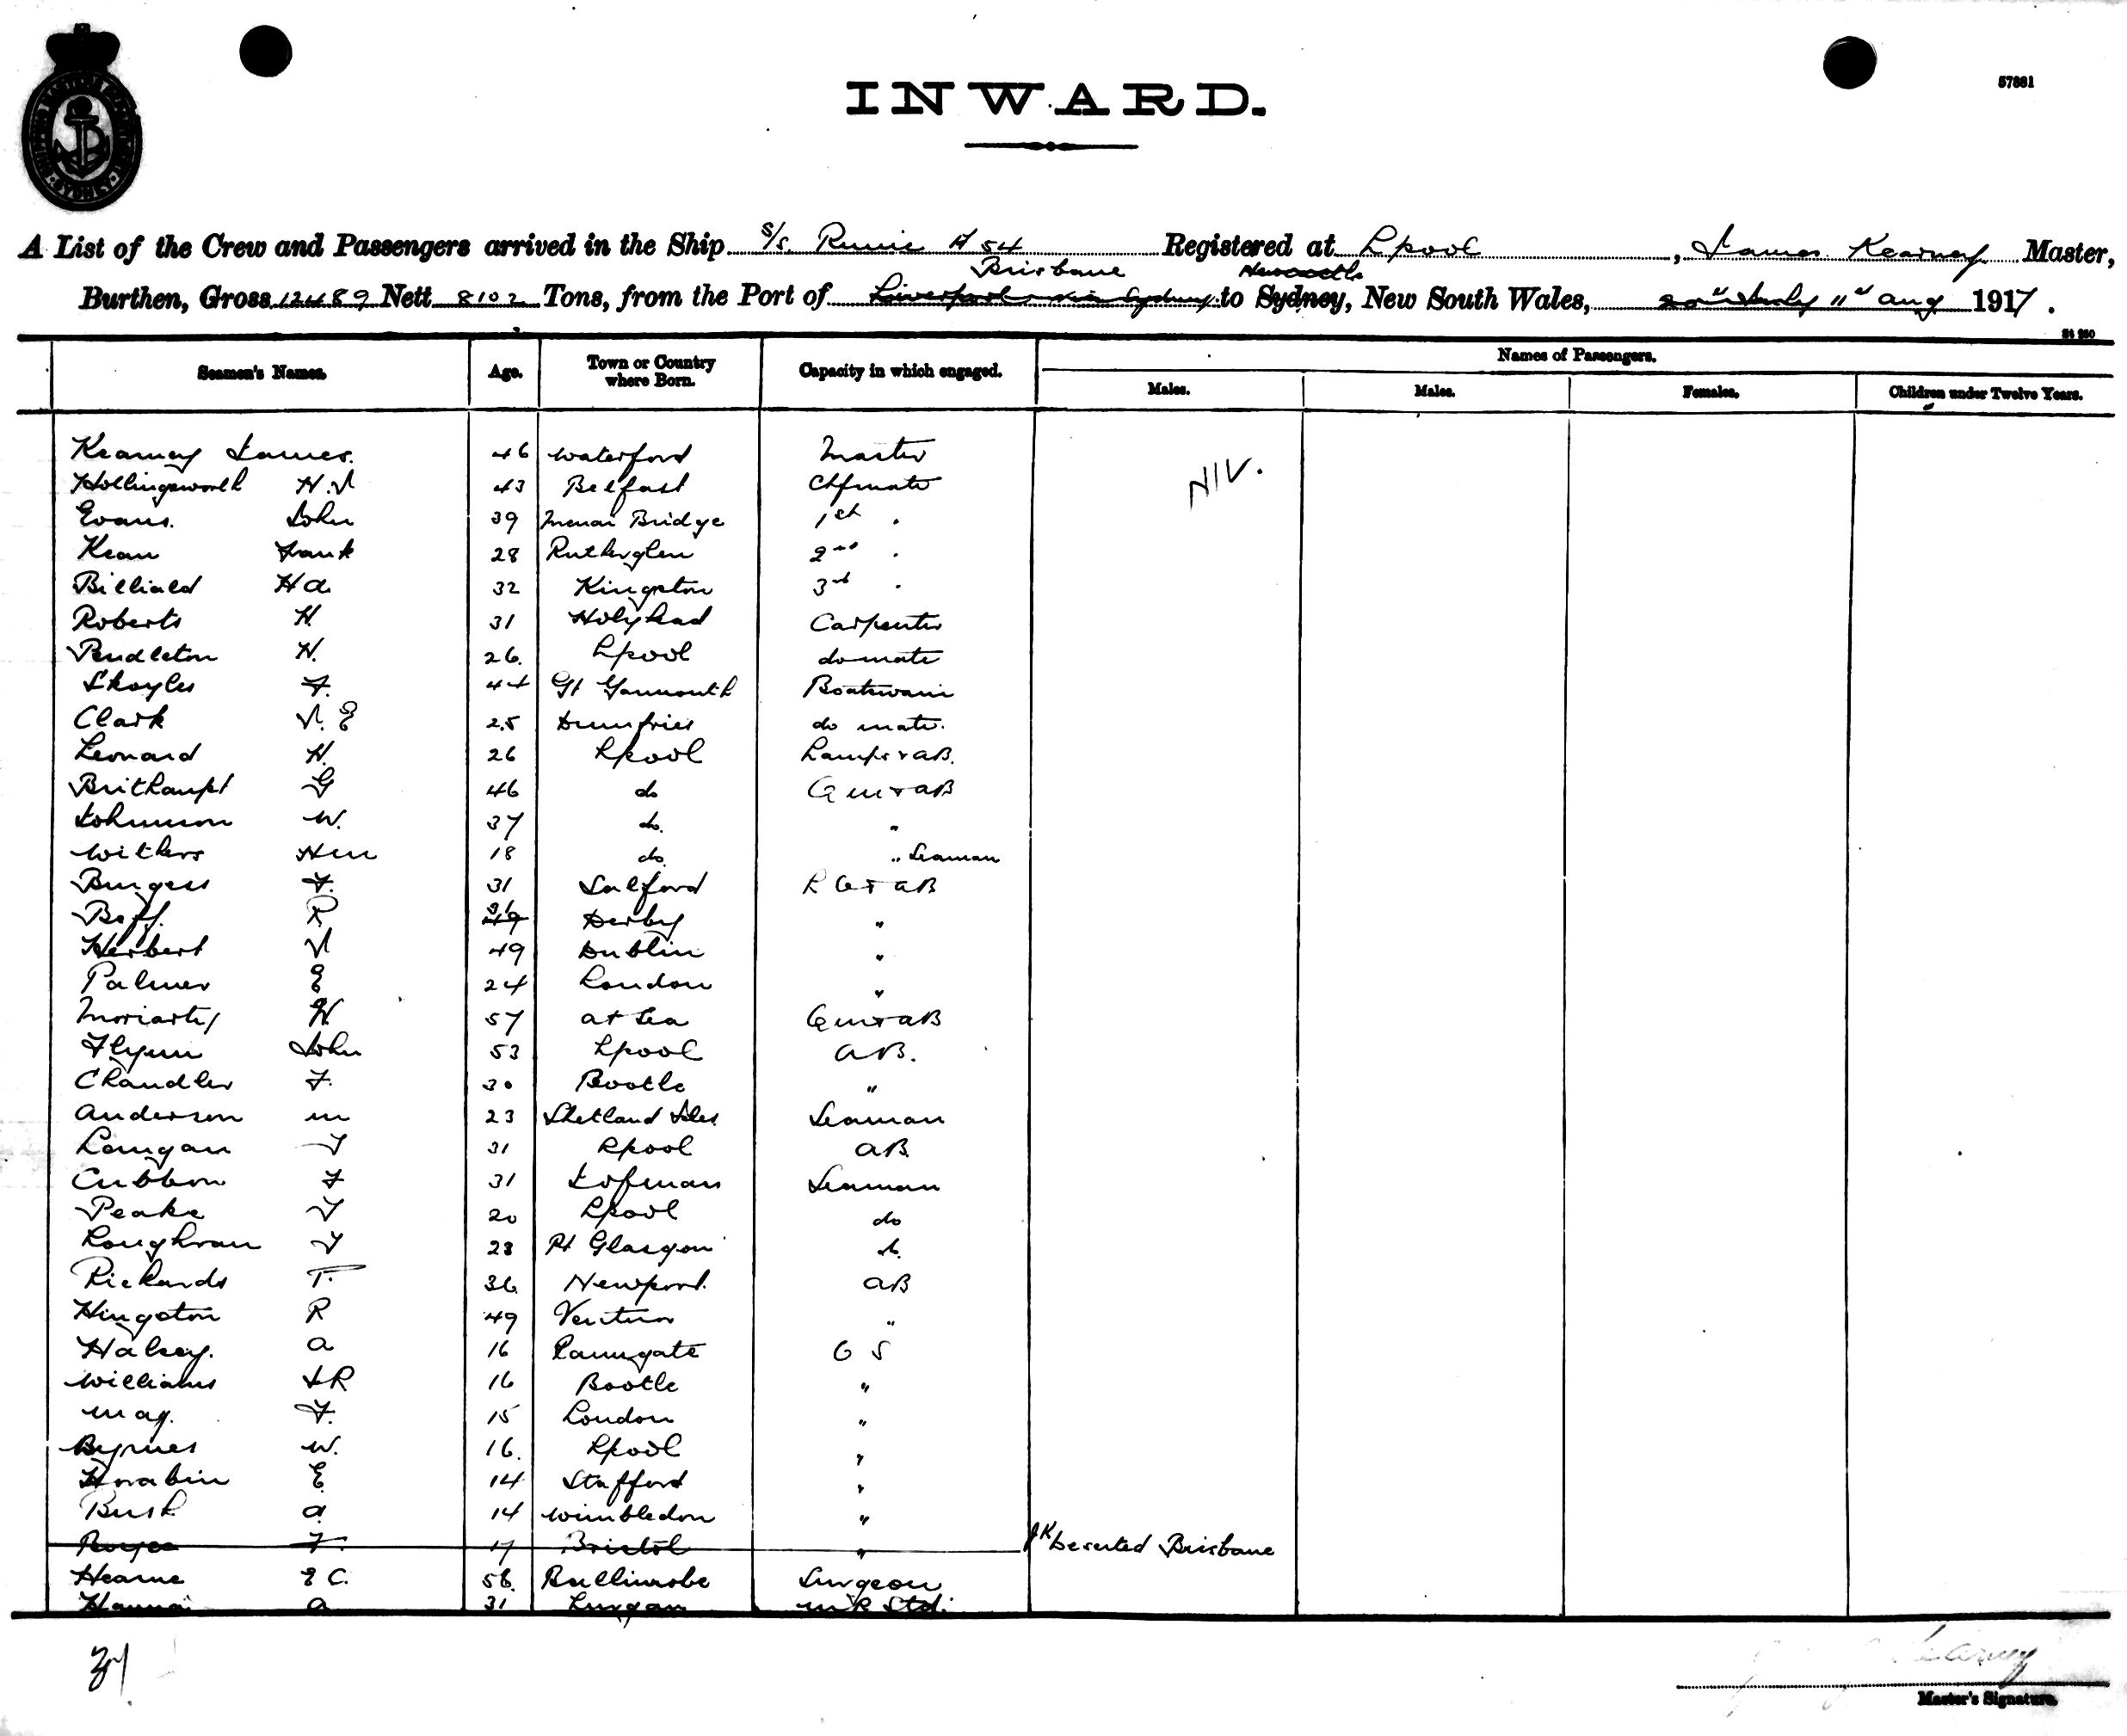 INWARD.
57881
A List of the Crew and Passengers arrived in the Ship S/S. Runic A 54 Registered at Lpool, James Kearney Master,
Brisbane Newcastle
Burthen, Gross 12489 Nett 8102 Tons, from the Port of Liverpool via Sydney to Sydney, New South Wales, 20th July 11th Aug 1917.
St 250
Seamen's Names. Age. Town or Country where Born. Capacity in which engaged. Names of Passengers.
Males. Males. Females. Children under Twelve Years.
Kearney James. 46 Waterford Master
Hollingsworth H.J 43 Belfast Chfmate NIL.
Evans. John 39 Menai Bridge 1st "
Kean Frank 28 Rutherglen 2nd "
Billiald H A. 32 Kingston 3rd "
Roberts H. 31 Holyhead Carpenter
Pendleton H. 26. Lpool do mate
Skoyles F. 44 Gt Yarmouth Boatswain
Clark J. E 25 Dumfries do mate.
Leonard H. 26 Lpool Lamps & AB.
Brithaupt G 46 do Q M & AB
Johnson W. 37 do. "
Withers Hm 18 do. " Seaman
Burgess F. 31 Salford L G & AB
Boff. R 49 Derby "
Herbert J 49 Dublin "
Palmer E 24 London "
Moriarty H. 57 At Sea Q M & AB
Flynn John 53 Lpool AB.
Chandler F. 30 Bootle "
Anderson M 23 Shetland Isles Seaman
Langan J 31 Lpool AB.
Cubbon F 31 I of man Seaman
Peake J 20 Lpool do
Loughran J 23 Pt Glasgow do.
Rickards T. 36. Newport. AB
Hingston R 49 Ventnor "
Halsey. A 16 Ramsgate O S
Williams J R 16 Bootle "
May. F. 15 London "
Byrnes W. 16. Lpool "
Horabin E. 14 Stafford "
Bush A. 14 Wimbledon "
F. 17 Bristol " JK Deserted Brisbane
Hearne E C. 58. Ballinrobe Surgeon
Hanna A 31 Lurgan Std.
37
Kearney
Master's Signature.